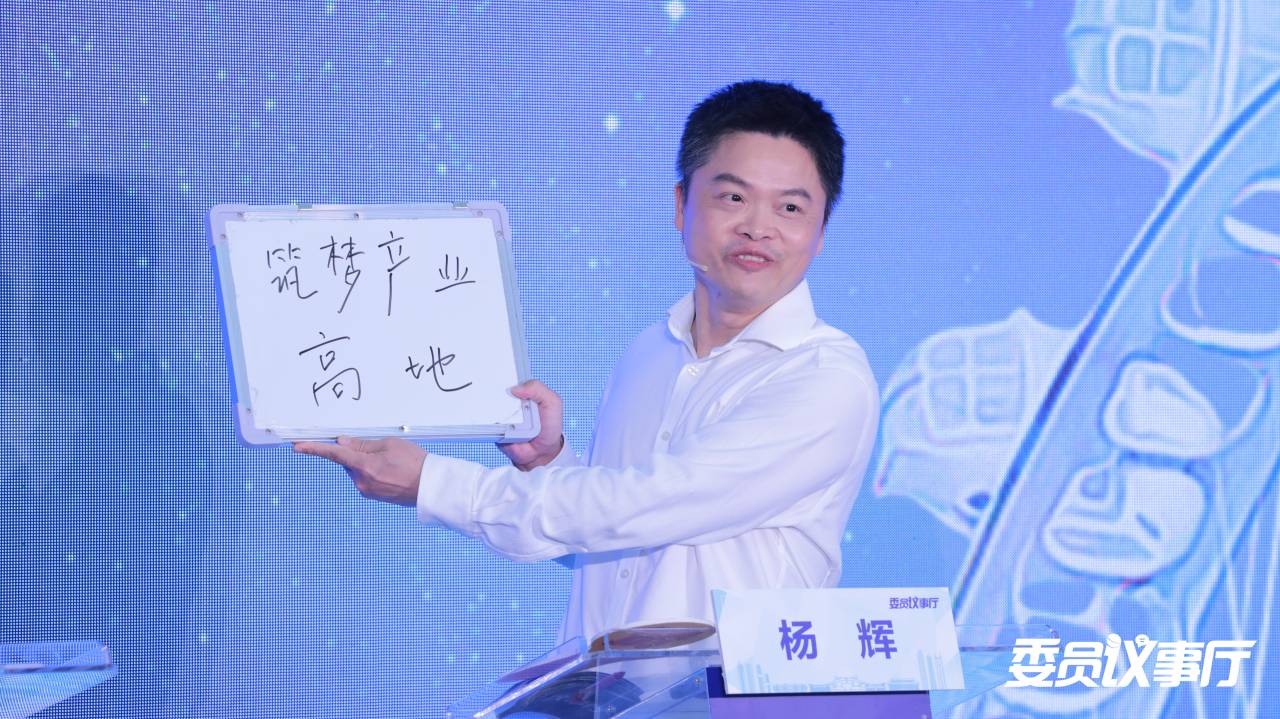 筑梦产业
高地
委员议事厅
杨辉
委员议事厅